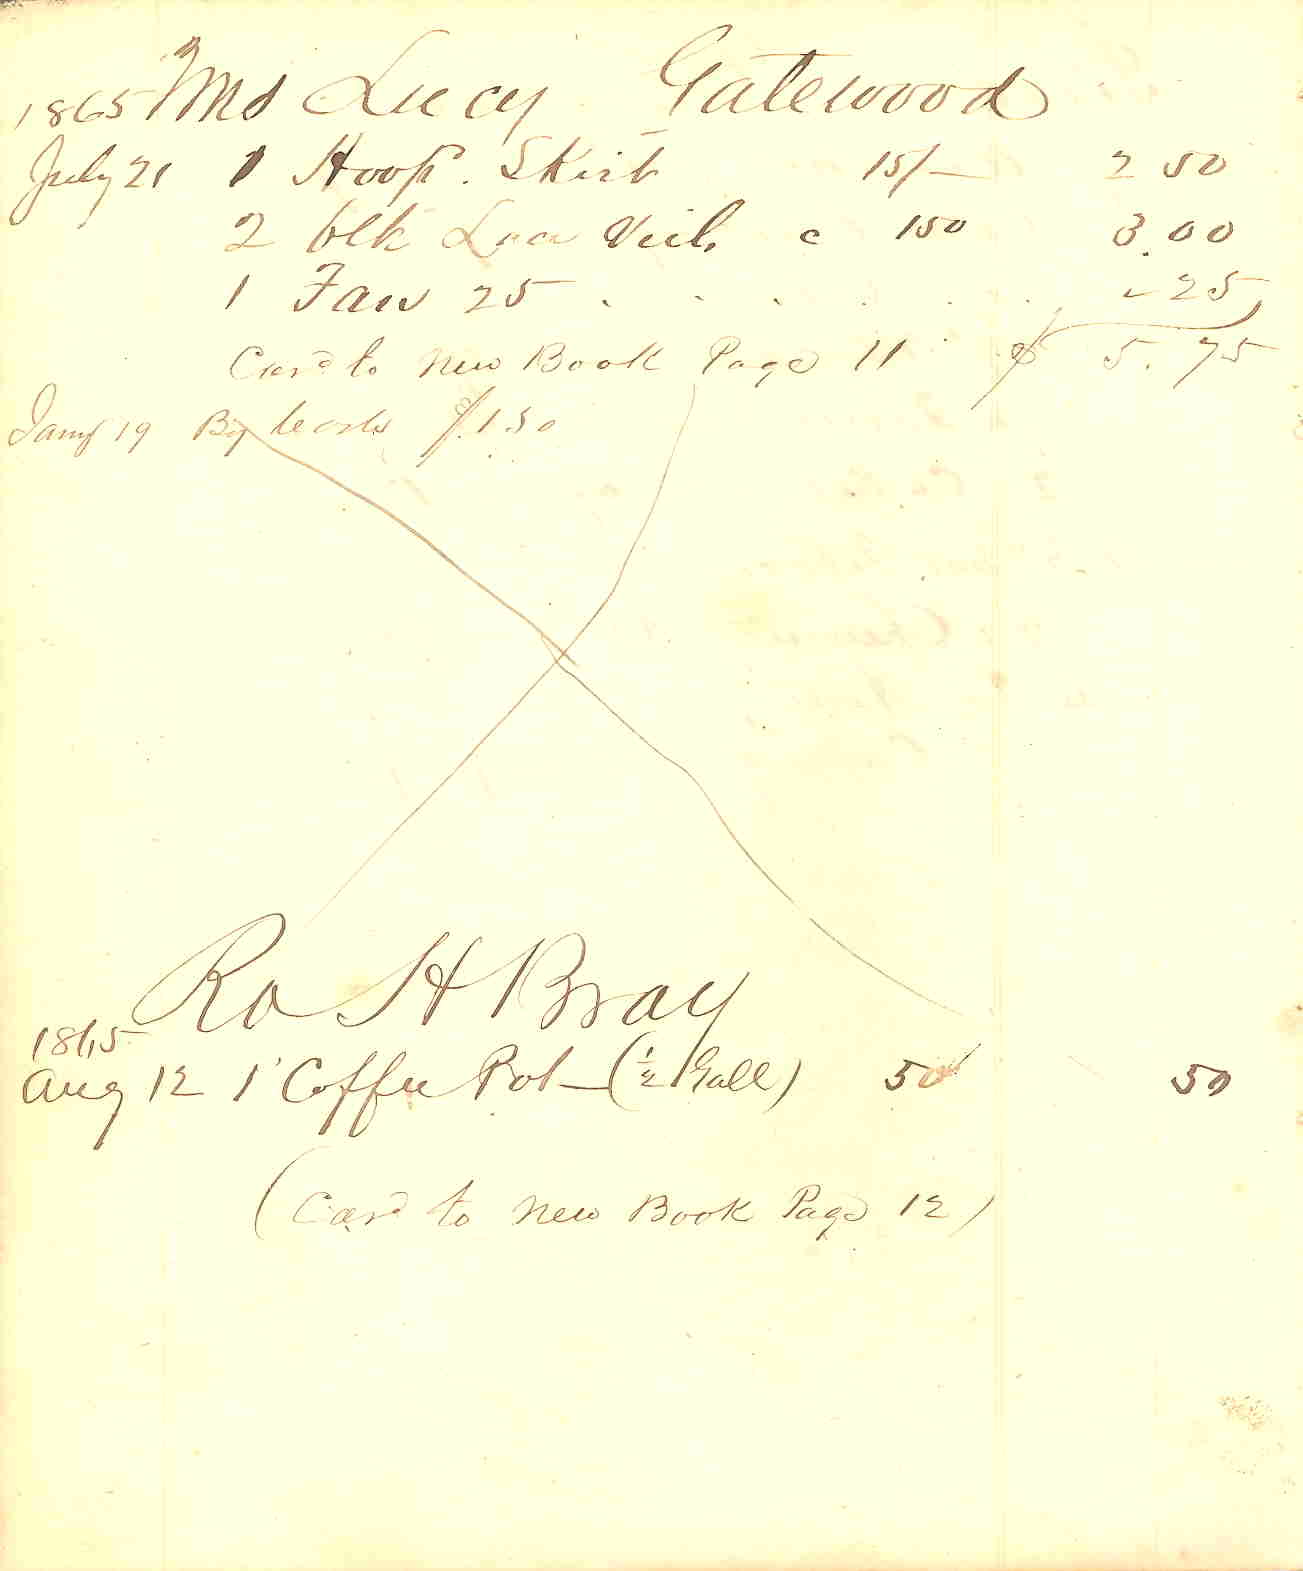 1865 Mrs Lucy Gatewood
July 21 1 Hoop. Skirt 15/- 2 50
2 blk Lace Veils c 150 3.00
1 Fan 25 . . . . . . 25
Card to new Book Page 11 $ 5.75
Jany 19 By $1.50
Ro H Bray
1865
Aug 12 1 Coffee Pot - (1/2 Gall) 50 50
(Card to new Book Page 12)